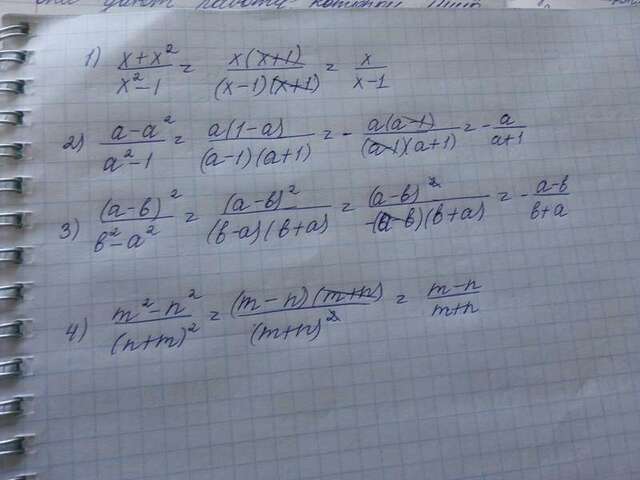 они дают работу
1) (x+x²)/(x²-1) = x(x+1)/((x-1)(x+1)) = x/(x-1)
2) (a-a²)/(a²-1) = a(1-a)/((a-1)(a+1)) = -a(a-1)/((a-1)(a+1)) = -a/(a+1)
3) (a-b)²/(b²-a²) = (a-b)²/((b-a)(b+a)) = (a-b)²/(-(a-b)(b+a)) = -(a-b)/(b+a)
4) (m²-n²)/(n+m)² = (m-n)(m+n)/(m+n)² = (m-n)/(m+n)